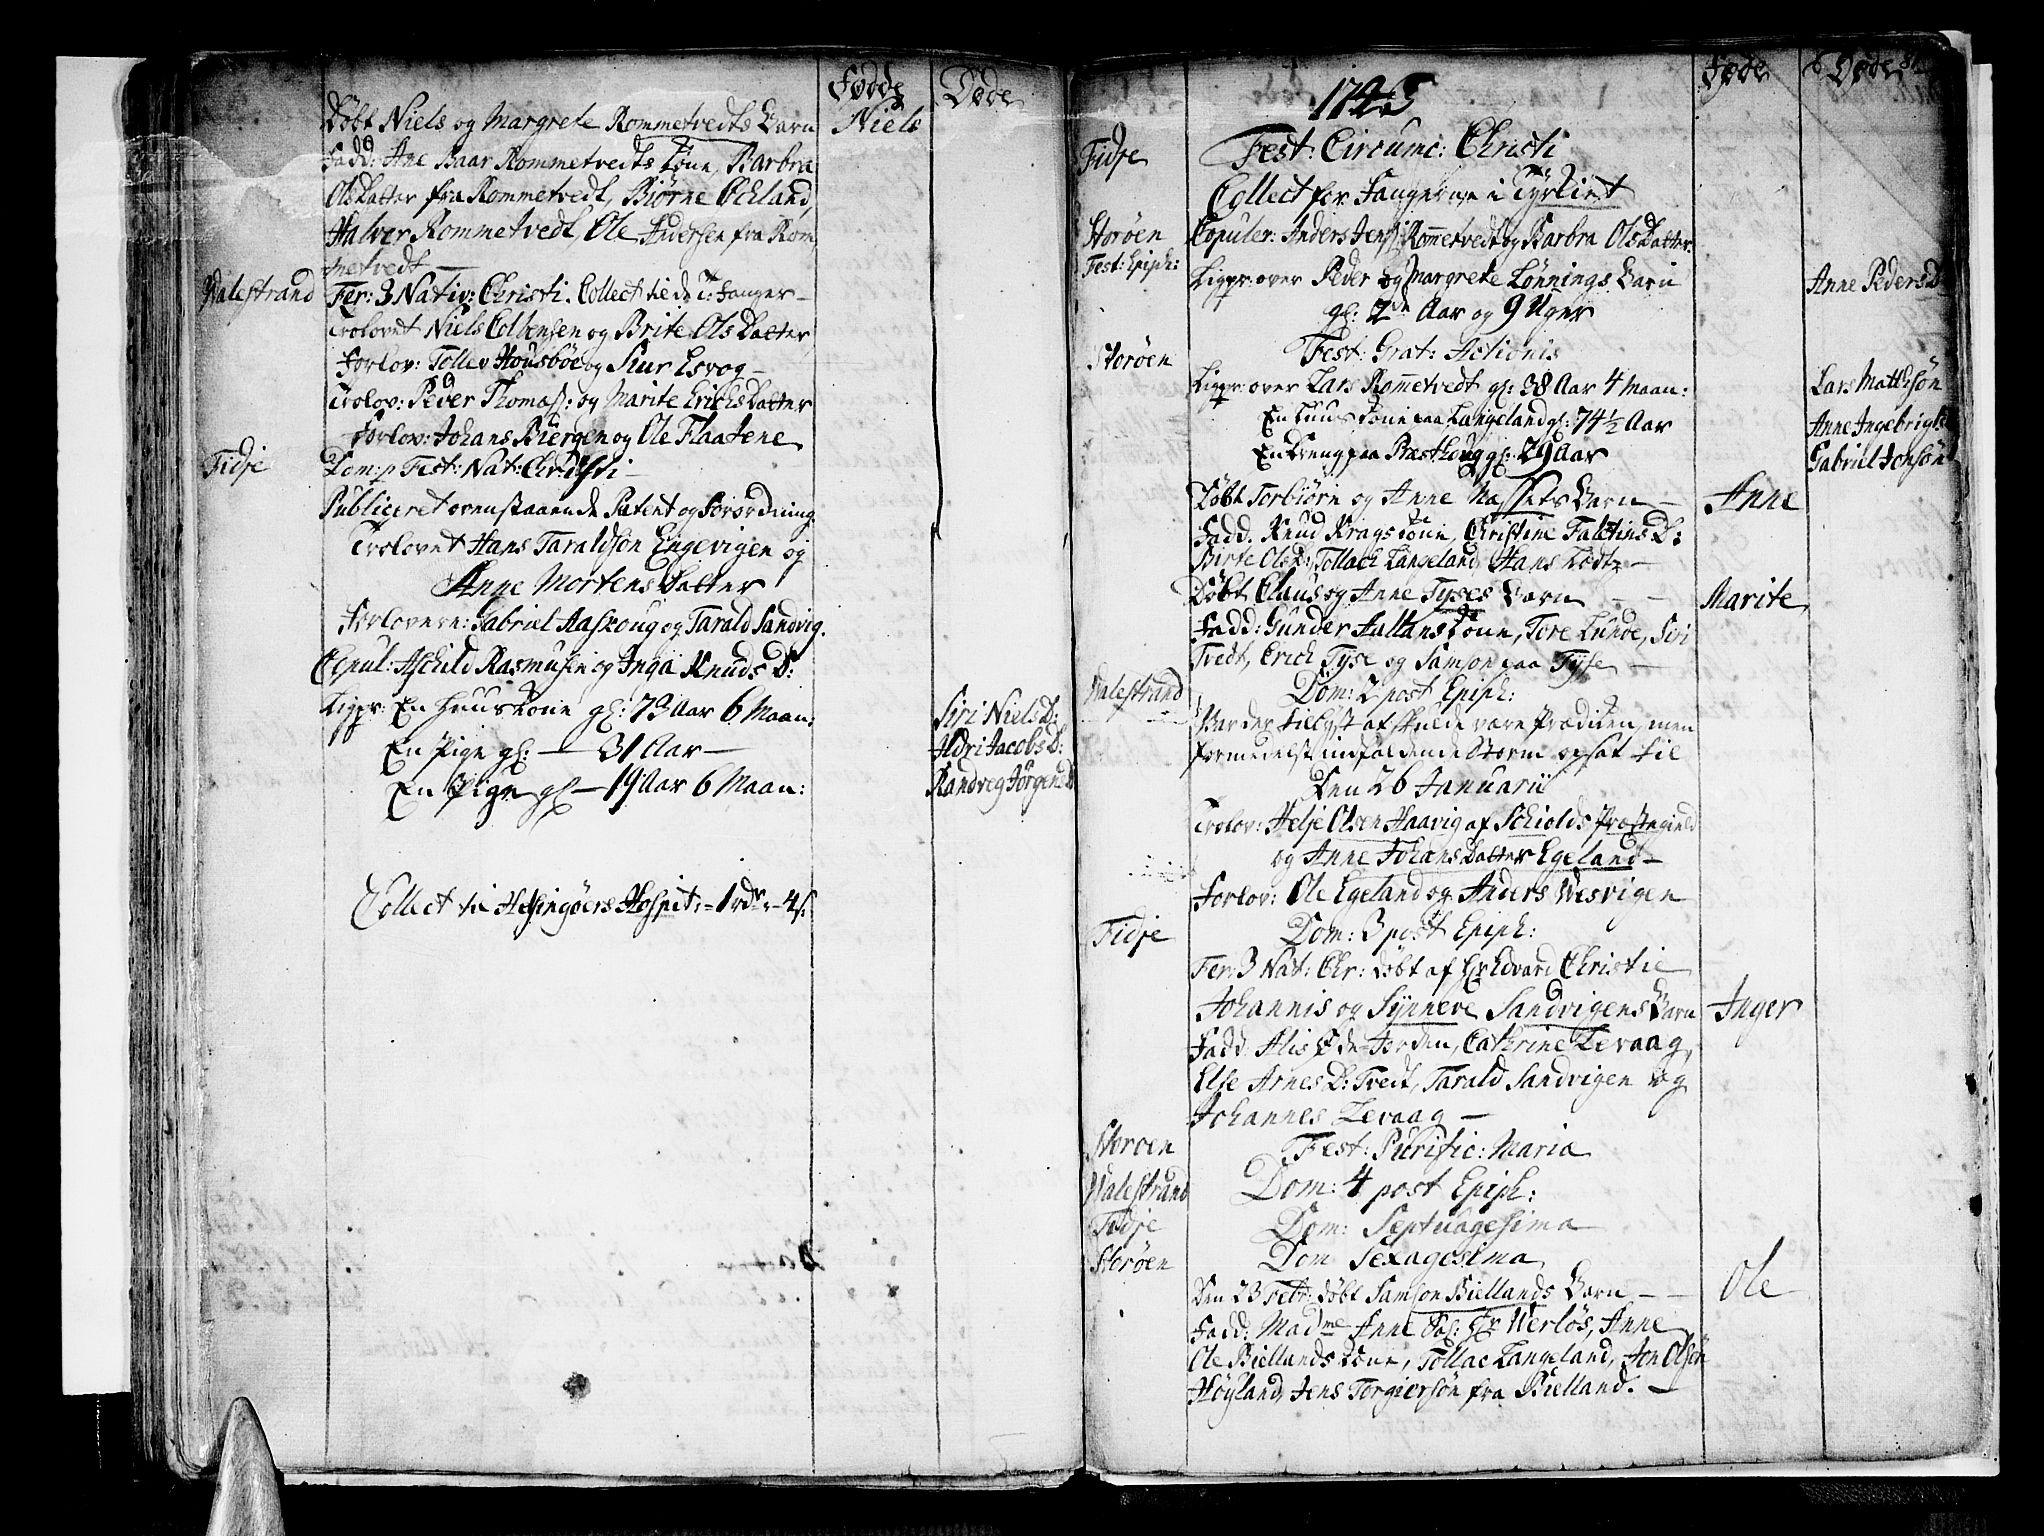 Fødde
Døde
Døbt Niels og Margrete Rommetvedts Barn
Niels
Fadd: Ane Baar Rommetvedts Kone, Barbra
Olsdatter fra Rommetvedt, Biørne Ekeland,
Halvor Rommetvedt, Ole Andersen fra Rom
metvedt —
Walestrand
Fer: 3 Nativ: Christi. Collect til de Fanger —
Trolovet Niels Colbensen og Brite Ols Datter
Forlov: Tollev Housbøe og Siur Esvog —
Trolov: Peder Thomas: og Marite Erichs Datter
Forlov: Johans Biergen og Ole Flaatene
Fidje
Dom: p Fest: Nat: Christi —
Publiceret ovenstaaende Patent og Forordning
Trolovet Hans Taraldsøn Engevigen og
Anne Mortens Datter
Forlovere: Gabriel Aaskoug og Tarald Sandvig.
Copul: Aschild Rasmusen og Inga Knuds D:
Ligpr: En Huuskone gl: 73 Aar 6 Maan:
Siri Niels D:
En Pige gl: — 31 Aar —
Aldri Jacobs D:
En Pige gl — 19 Aar 6 Maan:
Randveg Jørgens D
Collect til Helsingøers Hospit: = 1 rdr = 4 s:
Føde
Døde
1745
Fidje
Fest: Circumc: Christi
Collect for Fangerne i Tyrkiet
Storøen
Copuler: Anders Jens: Rommetvedt og Barbra Ols Datter
Fest: Epiph:
Ligpr: over Peder og Margrete Lønnings Barn
Anne Peders D
gl: 2de Aar og 9 Uger
Storøen
Fest: Grat: Actionis
Ligpr: over Lars Rommetvedt gl: 38 Aar 4 Maan:
Lars Mathisøn
En Huus Kone paa Langeland gl: 74½ Aar
Anne Ingebrigts
En Dreng paa Præsthoug gl: 29 Aar
Gabriel Jonsøn
Døbt Torbiørn og Anne Nassets Barn —
Anne
Fadd. Knud Krags Kone, Christine Faltins D:
Birte Ols D: Tollach Langeland, Hans Lodtz —
Døbt Claus og Anne Tyses Barn —
Marite
Fadd: Gunder Hallans Kone, Tore Lunde, Siri
Tvedt, Erich Tyse og Samson paa Tyse —
Walestrand
Dom: 2 post Epiph:
Var der tillyst af skulde være Prædiken, men
formedelst indfaldende Storm opsat til
Den 26 Januarii
Trolov: Helje Olsen Haavig af Schiolds Præstegield
og Anne Johans Datter Egeland —
Forlov: Ole Egeland og Anders Wesvigen
Fidje
Dom: 3 post Epiph:
Fer: 3 Nat: Chr: døbt af Hr Edvard Christie
Johannis og Synneve Sandvigens Barn
Inger
Fadd: Alis Øde-Jorden, Cathrine Levaag,
Else Arnes D: Tvedt, Tarald Sandvigen og
Johannes Levaag —
Storoen
Fest: Purific: Maria
Walestrand
Dom: 4 post Epiph:
Fidje
Dom: Septuagesima
Storøen
Dom Sexagesima
Den 23 Febr: døbt Samson Biellands Barn —
Ole
Fadd: Madme Anne Sal: Hr Werløs, Anne
Ole Biellands Kone, Tollac Langeland, Jon Olsøn
Høyland, Jens Torgiersøn fra Bielland. —